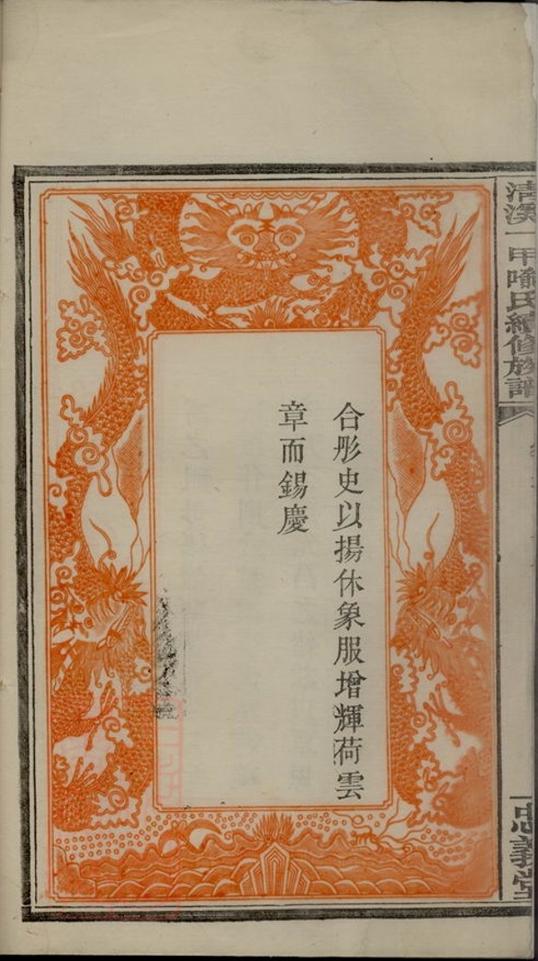 清溪一甲喻氏續修族譜
忠義堂
合彤史以揚休象服增輝荷雲
章而錫慶